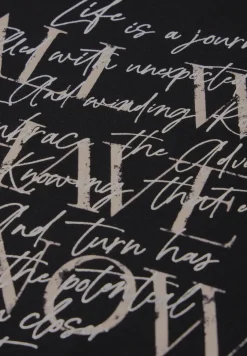 Life is a jour
lled with unexpecte
ALL W
And winding
WE
mbrac the Adv
Knowing that
And turn has
NOW
the potential
closer